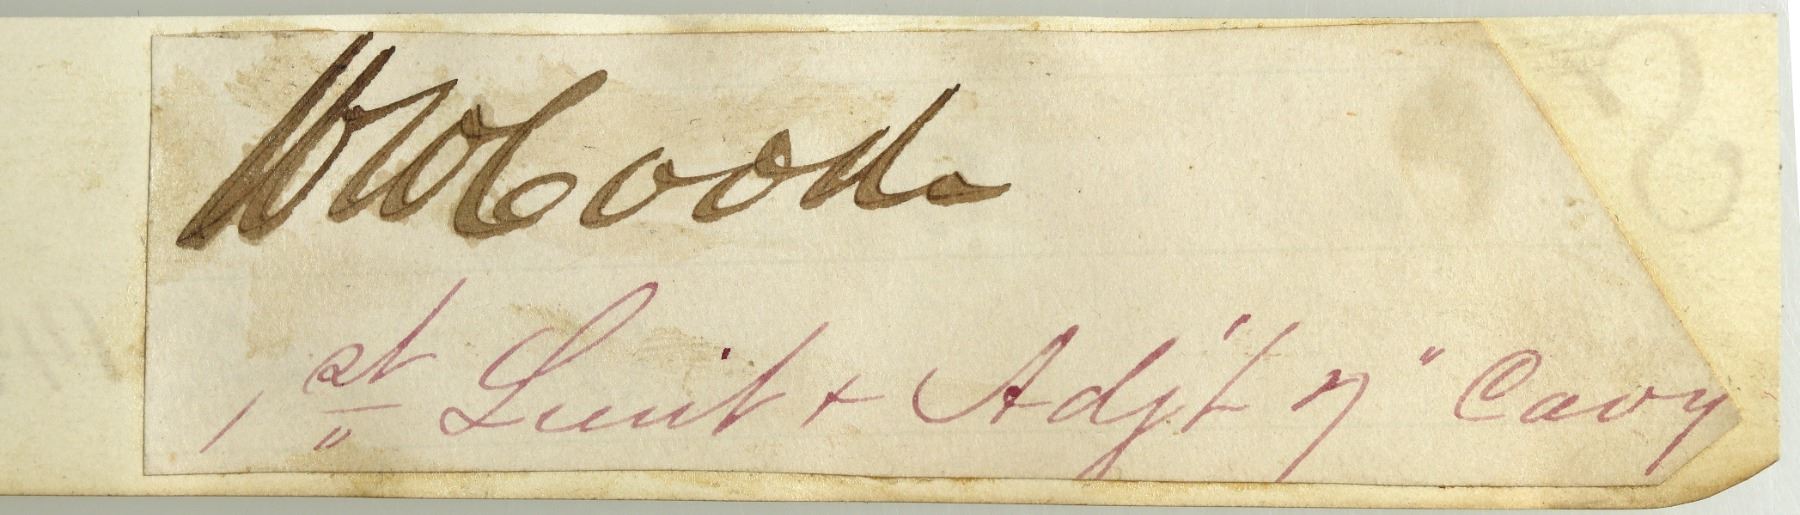 W W Cook
1st Lieut + Adj't 7" Cavy